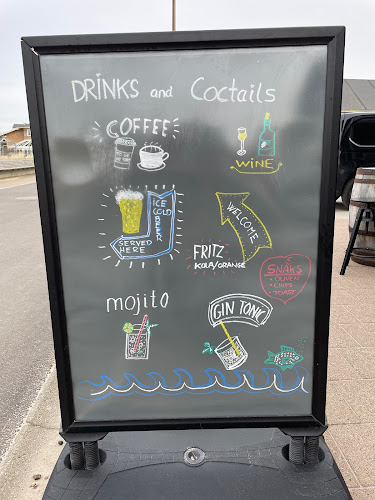 DRiNKS and Coctails
COFFEE
WiNE
ICE
COLD
BEER
SERVED
HERE
WELCOME
FRITZ
KOLA/ORANGE
SNAKS
• OLIVEN
• CHIPS
• TOAST
mojito
GIN TONIC